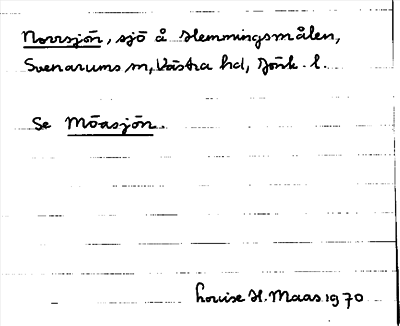 Norrsjön, sjö å Hemmingsmålen,
Svenarums sn, Västra hd, Jönk. l.
Se Möasjön.
Louise H. Maas 1970